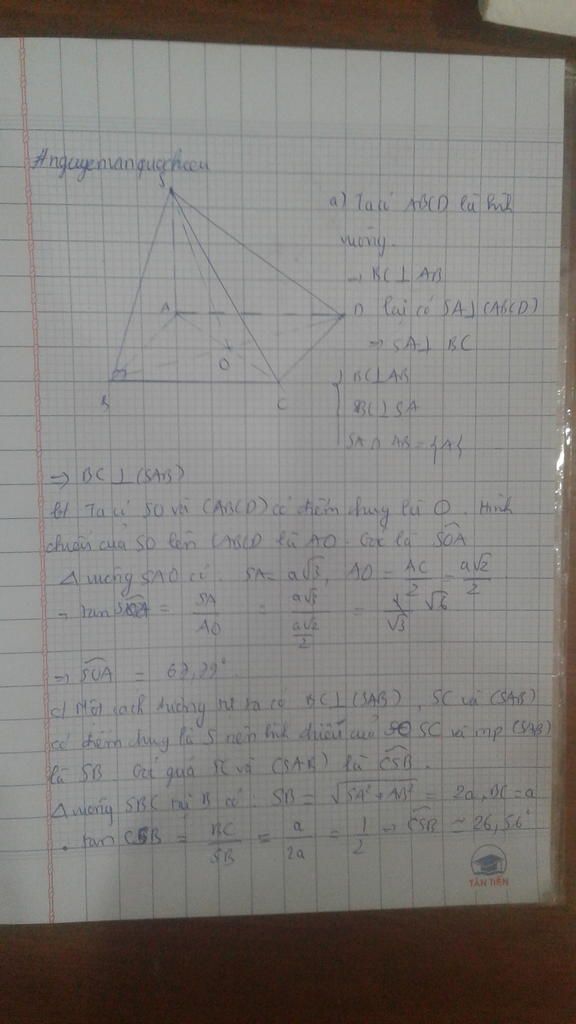 S
A
D
O
B
C
a) Ta có ABCD là hình
vuông.
→ BC ⊥ AB
lại có SA ⊥ (ABCD)
→ SA ⊥ BC
{ BC ⊥ AB
BC ⊥ SA
SA ∩ AB = {A}
→ BC ⊥ (SAB)
b) Ta có SO và (ABCD) có điểm chung là O. Hình
chiếu của SO lên (ABCD là AO. Góc là SOA
Δ vuông SAO có: SA = a√3, AO = AC/2 = a√2/2
→ tan SOA = SA/AO = a√3/(a√2/2) = √6
→ SOA = 67,79°
c) Một cách tương tự ta có BC ⊥ (SAB), SC và (SAB)
có điểm chung là S nên hình chiếu của SC và mp (SAB)
là SB. Góc SC và (SAB) là CSB.
Δ vuông SBC tại B có: SB = √(SA² + AB²) = 2a, BC = a
tan CSB = BC/SB = a/2a = 1/2 → CSB ≈ 26,56°
TÂN TIẾN